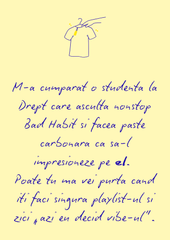 M-a cumparat o studenta la
Drept care asculta nonstop
Bad Habit si facea paste
carbonara ca sa-l
impresioneze pe el.
Poate tu ma vei purta cand
iti faci singura playlist-ul si
zici „azi eu decid vibe-ul”.